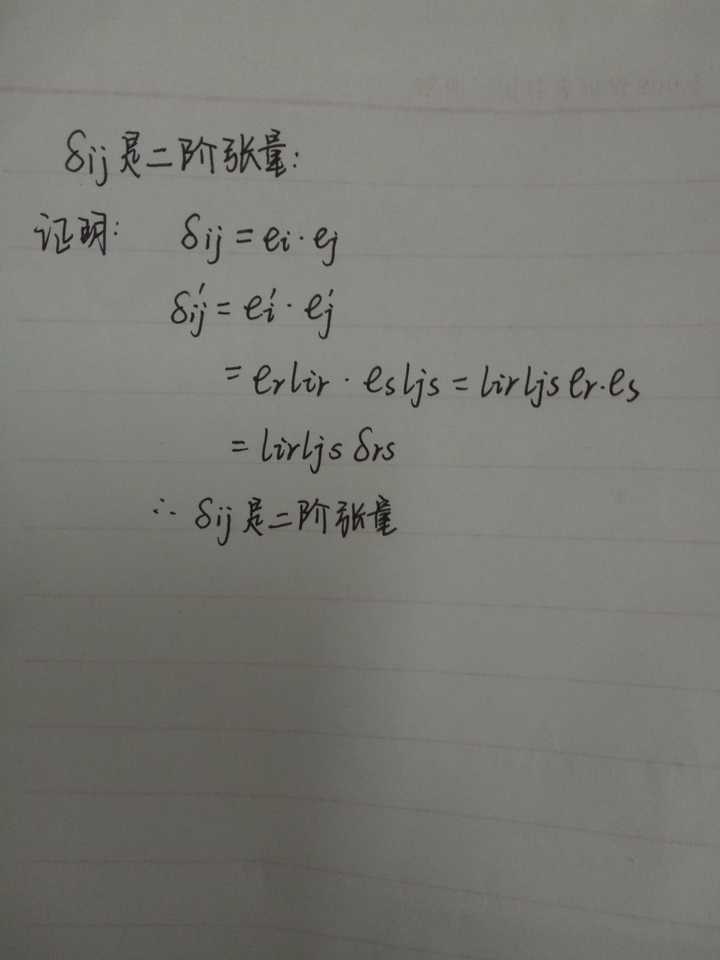 δij是二阶张量:
证明: δij = ei · ej
δ'ij = e'i · e'j
= erlir · esljs = lirljs er·es
= lirljs δrs
∴ δij是二阶张量